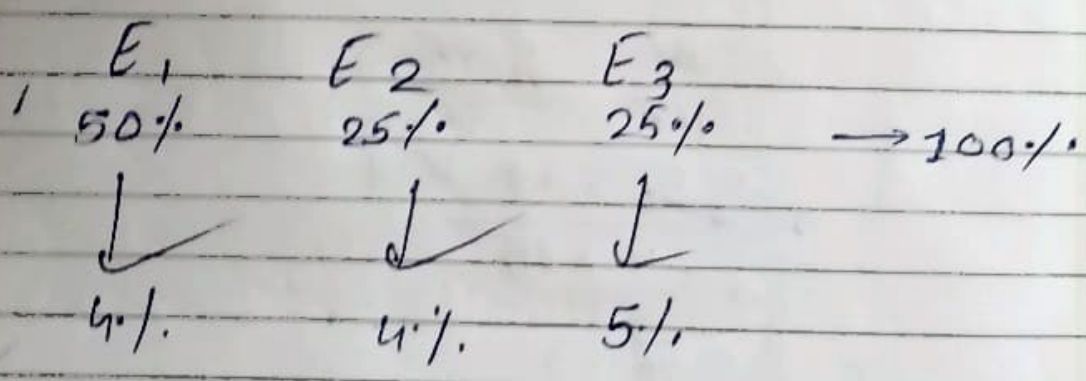 E1 E2 E3
50% 25% 25% → 100%
4% 4% 5%